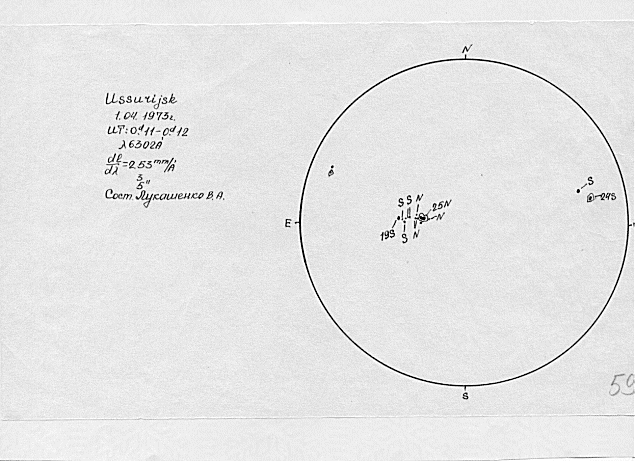 N
Ussurijsk
1.04. 1973г.
UT: 0.ᵈ11-0.ᵈ12
λ 6302Å
dℓ/dλ = 2.53 mm/Å
5"
Сост. Лукашенко В.А.
S
24S
S S N
25N
E
N
19S
S N
S
59